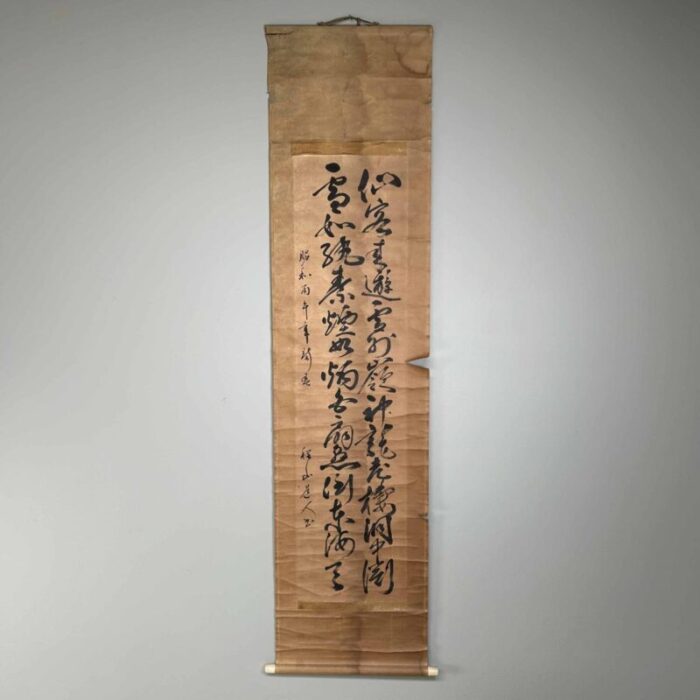 仙客来遊雲外巓神龍老棲洞中渕
雪如紈素煙如柄白扇懸倒東海天
昭和丙午年春
山道人書